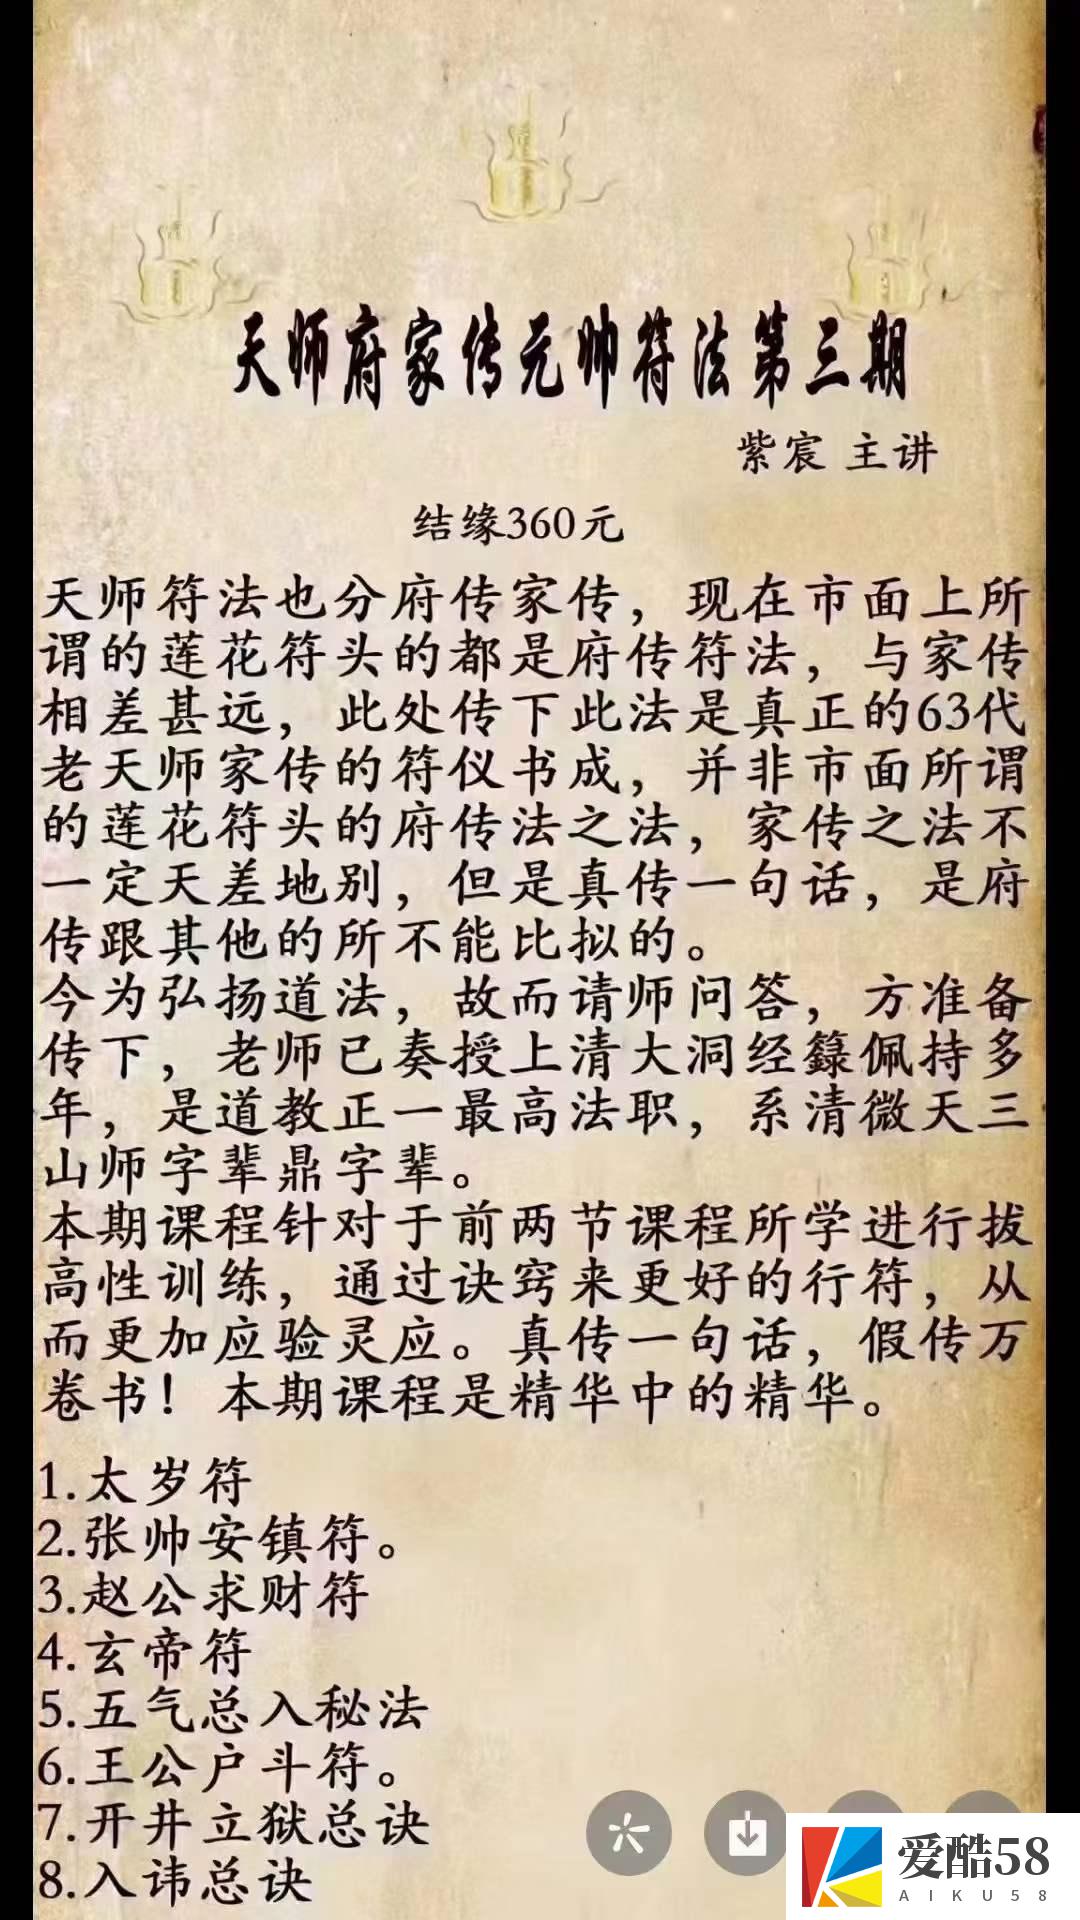 天师府家传元帅符法第三期
紫宸 主讲
结缘360元
天师符法也分府传家传，现在市面上所
谓的莲花符头的都是府传符法，与家传
相差甚远，此处传下此法是真正的63代
老天师家传的符仪书成，并非市面所谓
的莲花符头的府传法之法，家传之法不
一定天差地别，但是真传一句话，是府
传跟其他的所不能比拟的。
今为弘扬道法，故而请师问答，方准备
传下，老师已奏授上清大洞经籙佩持多
年，是道教正一最高法职，系清微天三
山师字辈鼎字辈。
本期课程针对于前两节课程所学进行拔
高性训练，通过诀窍来更好的行符，从
而更加应验灵应。真传一句话，假传万
卷书！本期课程是精华中的精华。
1.太岁符
2.张帅安镇符。
3.赵公求财符
4.玄帝符
5.五气总入秘法
6.王公户斗符。
7.开井立狱总诀
8.入讳总诀
爱酷58
AIKU58